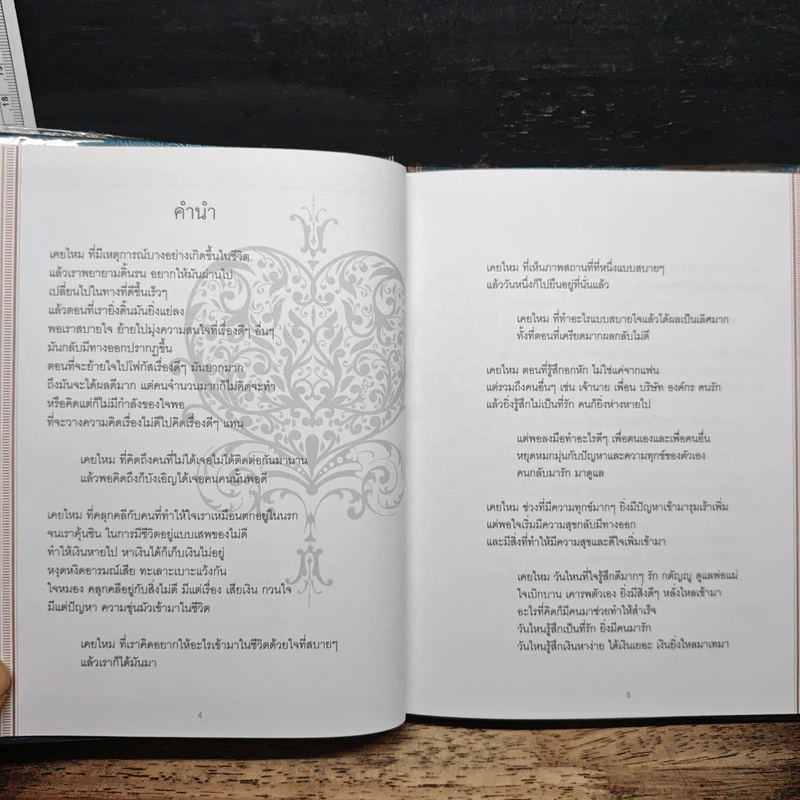 คำนำ
เคยไหม ที่มีเหตุการณ์บางอย่างเกิดขึ้นในชีวิต
แล้วเราพยายามดิ้นรน อยากให้มันผ่านไป
เปลี่ยนไปในทางที่ดีขึ้นเร็วๆ
แล้วตอนที่เรายิ่งดิ้นมันยิ่งแย่ลง
พอเราสบายใจ ย้ายไปมุ่งความสนใจที่เรื่องดีๆ อื่นๆ
มันกลับมีทางออกปรากฏขึ้น
ตอนที่จะย้ายใจไปโฟกัสเรื่องดีๆ มันยากมาก
ถึงมันจะได้ผลดีมาก แต่คนจำนวนมากก็ไม่คิดจะทำ
หรือคิดแต่ก็ไม่มีกำลังของใจพอ
ที่จะวางความคิดเรื่องไม่ดีไปคิดเรื่องดีๆ แทน
เคยไหม ที่คิดถึงคนที่ไม่ได้เจอไม่ได้ติดต่อกันมานาน
แล้วพอคิดถึงก็บังเอิญได้เจอคนคนนั้นพอดี
เคยไหม ที่คลุกคลีกับคนที่ทำให้ใจเราเหมือนตกอยู่ในนรก
จนเราคุ้นชิน ในการมีชีวิตอยู่แบบเสพของไม่ดี
ทำให้เงินหายไป หาเงินได้ก็เก็บเงินไม่อยู่
หงุดหงิดอารมณ์เสีย ทะเลาะเบาะแว้งกัน
ใจหมอง คลุกคลีอยู่กับสิ่งไม่ดี มีแต่เรื่อง เสียเงิน กวนใจ
มีแต่ปัญหา ความขุ่นมัวเข้ามาในชีวิต
เคยไหม ที่เราคิดอยากให้อะไรเข้ามาในชีวิตด้วยใจที่สบายๆ
แล้วเราก็ได้มันมา
4
เคยไหม ที่เห็นภาพสถานที่ที่หนึ่งแบบสบายๆ
แล้ววันหนึ่งก็ไปยืนอยู่ที่นั่นแล้ว
เคยไหม ที่ทำอะไรแบบสบายใจแล้วได้ผลเป็นเลิศมาก
ทั้งที่ตอนที่เครียดมากผลกลับไม่ดี
เคยไหม ตอนที่รู้สึกอกหัก ไม่ใช่แค่จากแฟน
แต่รวมถึงคนอื่นๆ เช่น เจ้านาย เพื่อน บริษัท องค์กร คนรัก
แล้วยิ่งรู้สึกไม่เป็นที่รัก คนก็ยิ่งห่างหายไป
แต่พอลงมือทำอะไรดีๆ เพื่อตนเองและเพื่อคนอื่น
หยุดหมกมุ่นกับปัญหาและความทุกข์ของตัวเอง
คนกลับมารัก มาดูแล
เคยไหม ช่วงที่มีความทุกข์มากๆ ยิ่งมีปัญหาเข้ามารุมเร้าเพิ่ม
แต่พอใจเริ่มมีความสุขกลับมีทางออก
และมีสิ่งที่ทำให้มีความสุขและดีใจเพิ่มเข้ามา
เคยไหม วันไหนที่ใจรู้สึกดีมากๆ รัก กตัญญู ดูแลพ่อแม่
ใจเบิกบาน เคารพตัวเอง ยิ่งมีสิ่งดีๆ หลั่งไหลเข้ามา
อะไรที่คิดก็มีคนมาช่วยทำให้สำเร็จ
วันไหนรู้สึกเป็นที่รัก ยิ่งมีคนมารัก
วันไหนรู้สึกเงินหาง่าย ได้เงินเยอะ เงินยิ่งไหลมาเทมา
5
18